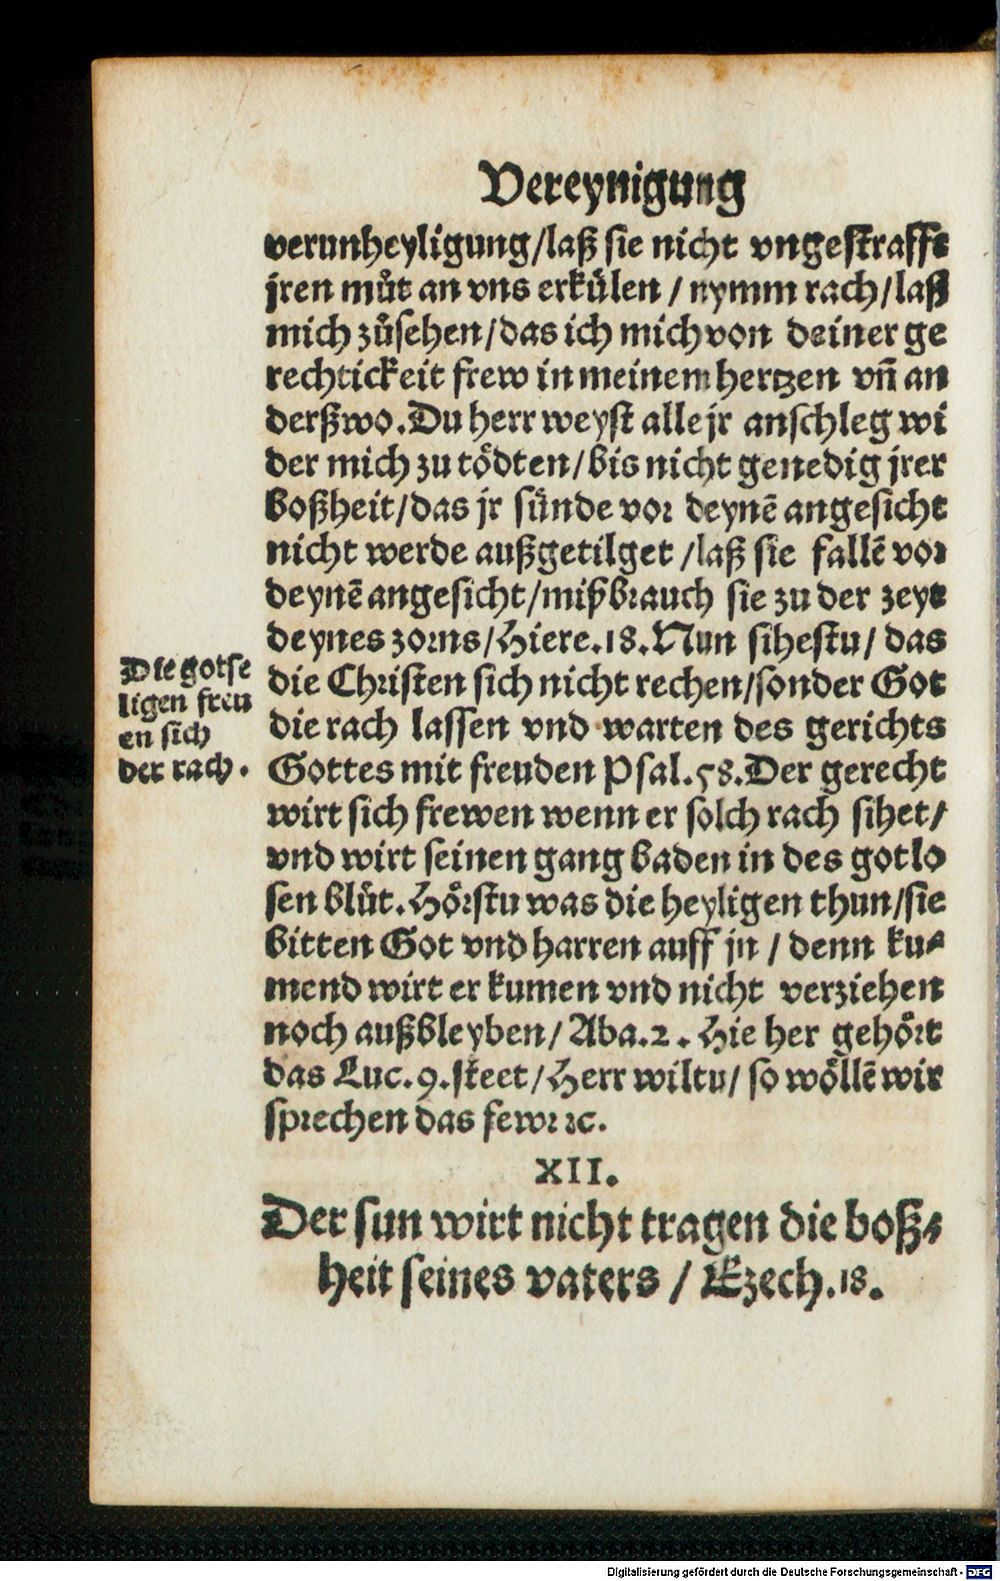 Vereynigung
verunheyligung/laß sie nicht vngestrafft
jren můt an vns erkülen / nymm rach/laß
mich zůsehen/das ich mich von deiner ge
rechtickeit frew in meinem hertzen vñ an
derßwo. Du herr weyst alle jr anschleg wi
der mich zu tödten/bis nicht genedig jrer
boßheit/das jr sünde vor deynẽ angesicht
nicht werde außgetilget /laß sie fallẽ vor
deynẽ angesicht/mißbrauch sie zu der zeyt
deynes zorns/Hiere.18. Nun sihestu/ das
die Christen sich nicht rechen/sonder Got
die rach lassen vnd warten des gerichts
Gottes mit freuden Psal.58. Der gerecht
wirt sich frewen wenn er solch rach sihet/
vnd wirt seinen gang baden in des gotlo
sen blůt. Hörstu was die heyligen thun/sie
bitten Got vnd harren auff jn / denn ku⸗
mend wirt er kumen vnd nicht verziehen
noch außbleyben/ Aba.2. Hie her gehört
das Luc.9. steet/Herr wiltu/ so wöllẽ wir
sprechen das fewr ꝛc.
Die gotse
ligen freu
en sich
der rach.
XII.
Der sun wirt nicht tragen die boß⸗
heit seines vaters / Ezech.18.
Digitalisierung gefördert durch die Deutsche Forschungsgemeinschaft - DFG